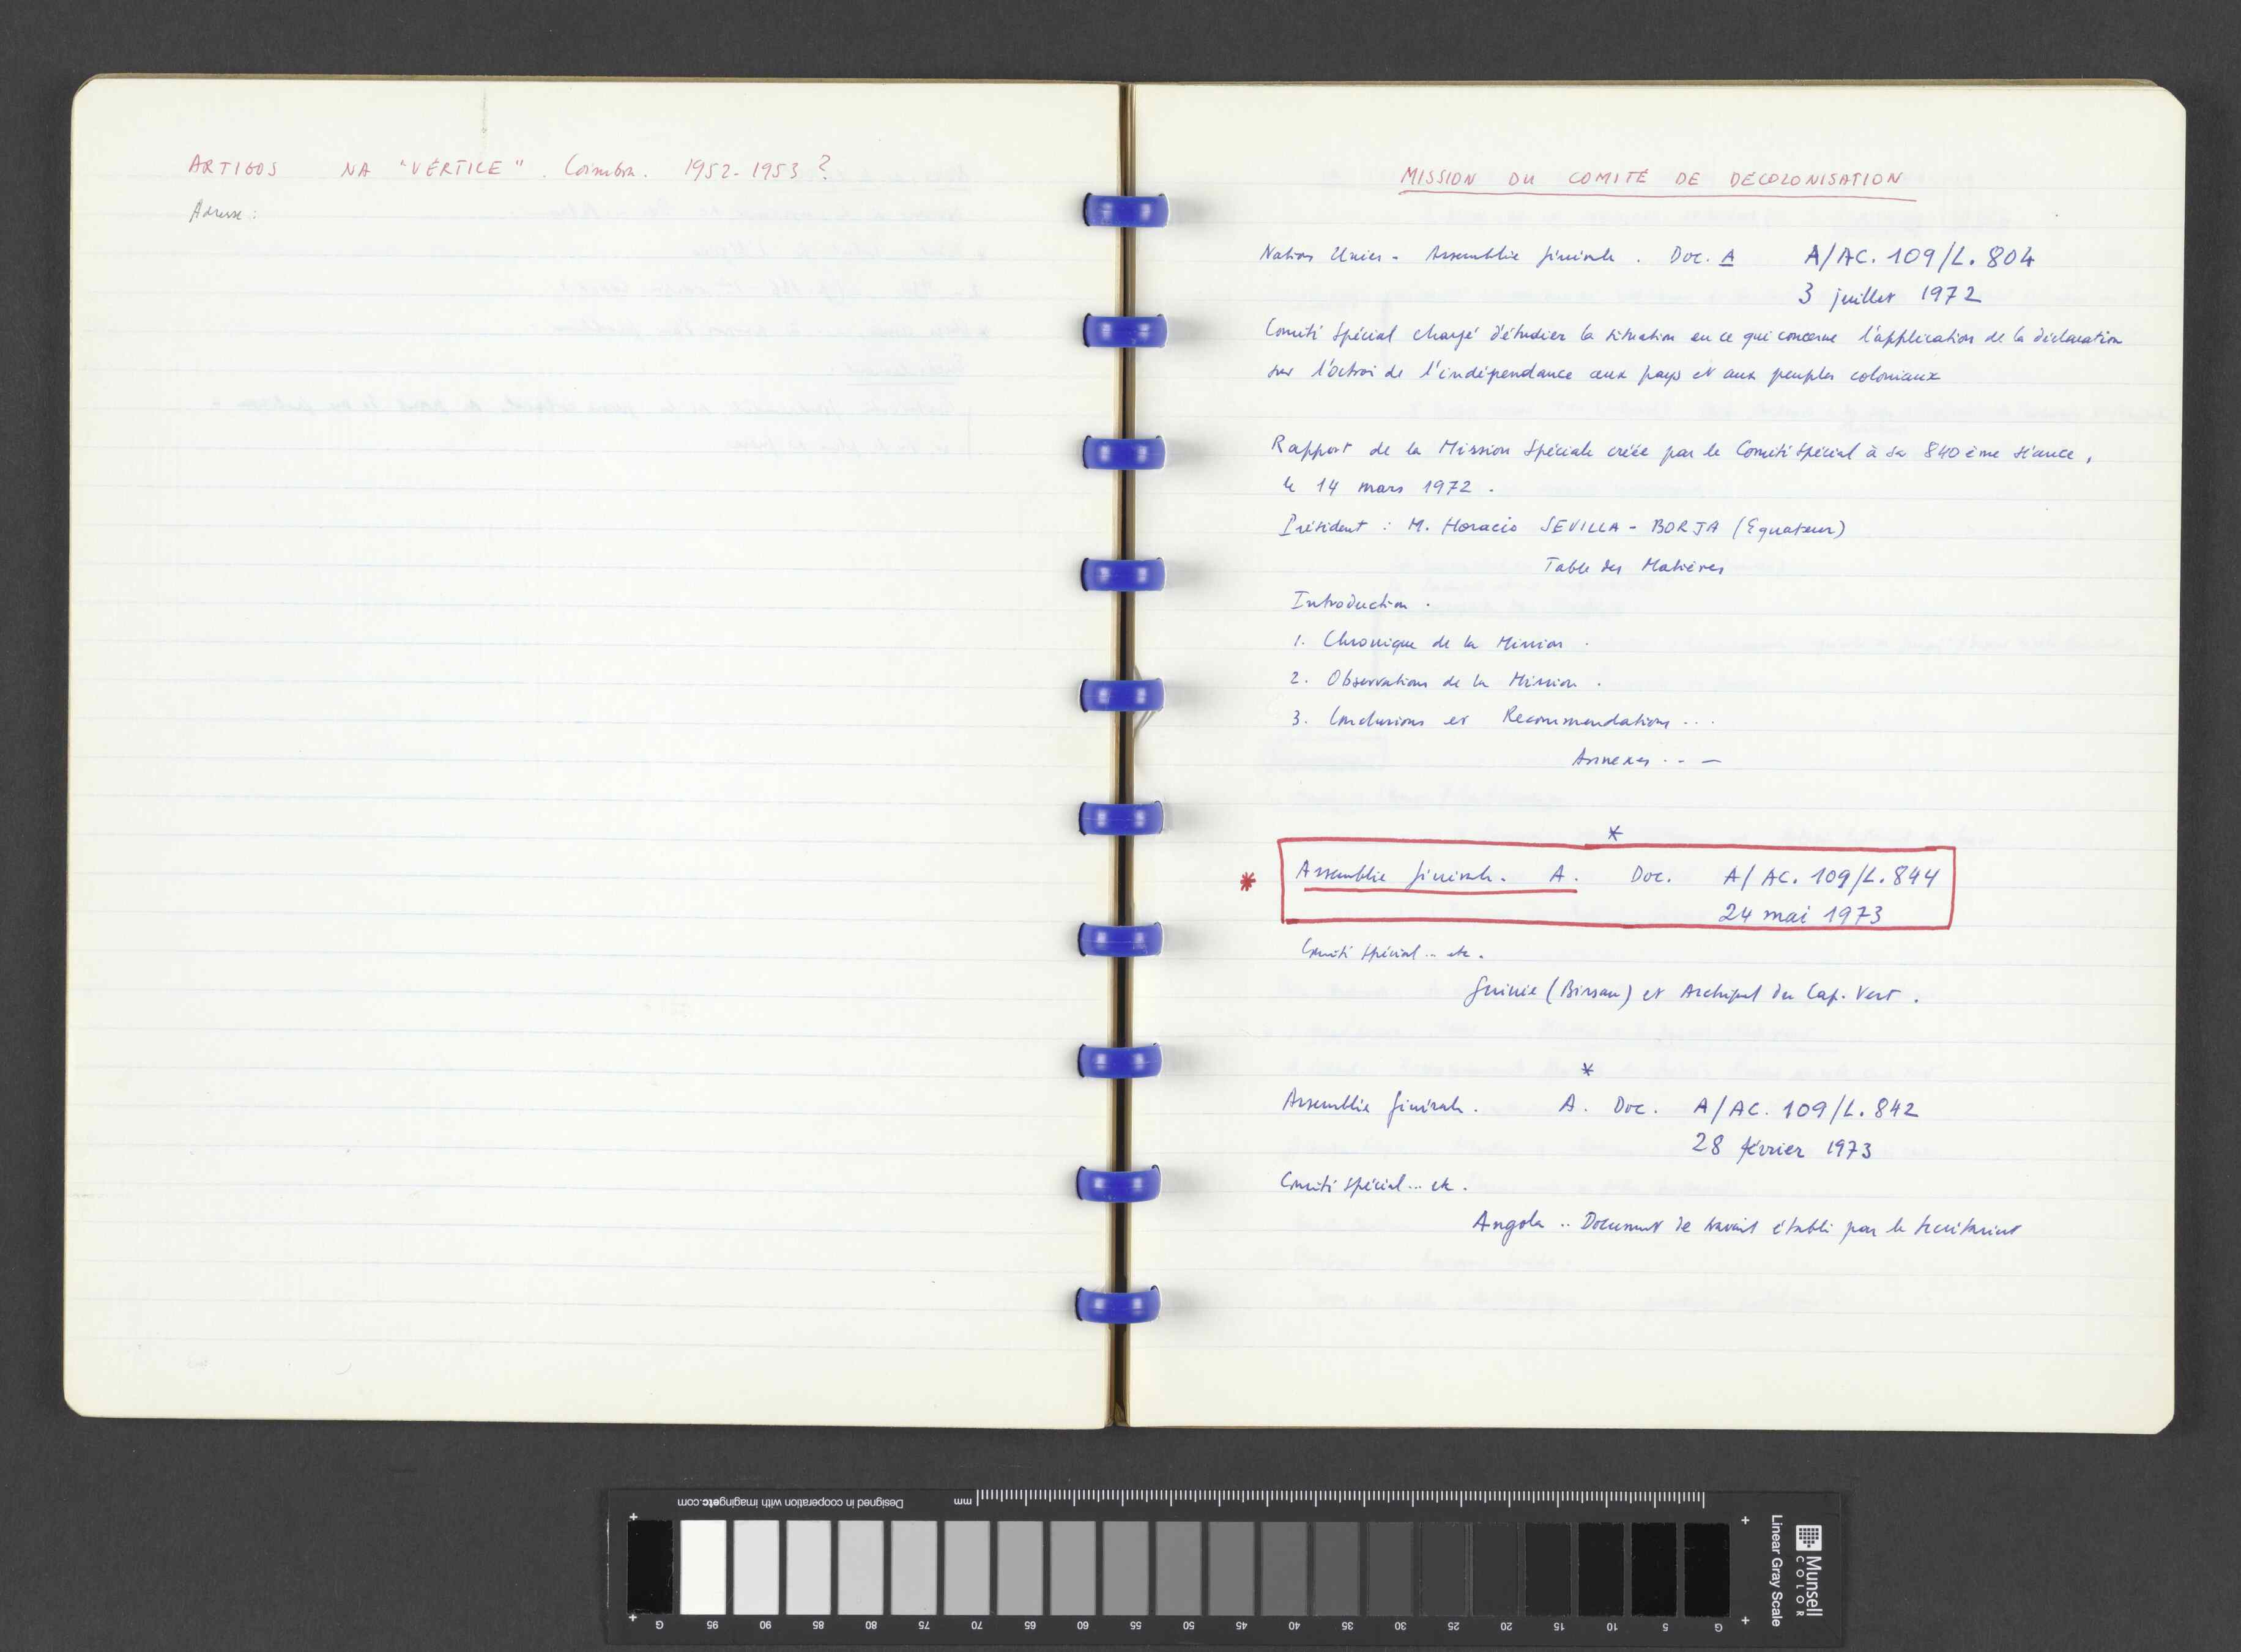 ARTIGOS NA "VÉRTICE". Coimbra. 1952-1953?
Adresse :
MISSION DU COMITÉ DE DÉCOLONISATION
Nations Unies - Assemblée générale . Doc. A A/AC. 109/L. 804
3 juillet 1972
Comité Spécial chargé d'étudier la situation en ce qui concerne l'application de la déclaration
sur l'octroi de l'indépendance aux pays et aux peuples coloniaux
Rapport de la Mission Spéciale créée par le Comité Spécial à sa 840ème séance,
le 14 mars 1972 .
Président : M. Horacio SEVILLA - BORJA (Equateur)
Table des Matières
Introduction .
1. Chronique de la Mission .
2. Observations de la Mission .
3. Conclusions et Recommendations ...
Annexes . - —
*
* Assemblée générale. A. Doc. A/AC. 109/L. 844
24 mai 1973
Comité Spécial .. etc.
Guinée (Bissau) et Archipel du Cap. Vert .
*
Assemblée générale. A. Doc. A/AC. 109/L. 842
28 février 1973
Comité Spécial ... etc.
Angola .. Document de travail établi par le Secrétariat
Designed in cooperation with imagingetc.com
mm
G 95 90 85 80 75 70 65 60 55 50 45 40 35 30 25 20 15 10 5 G
Linear Gray Scale
Munsell
COLOR